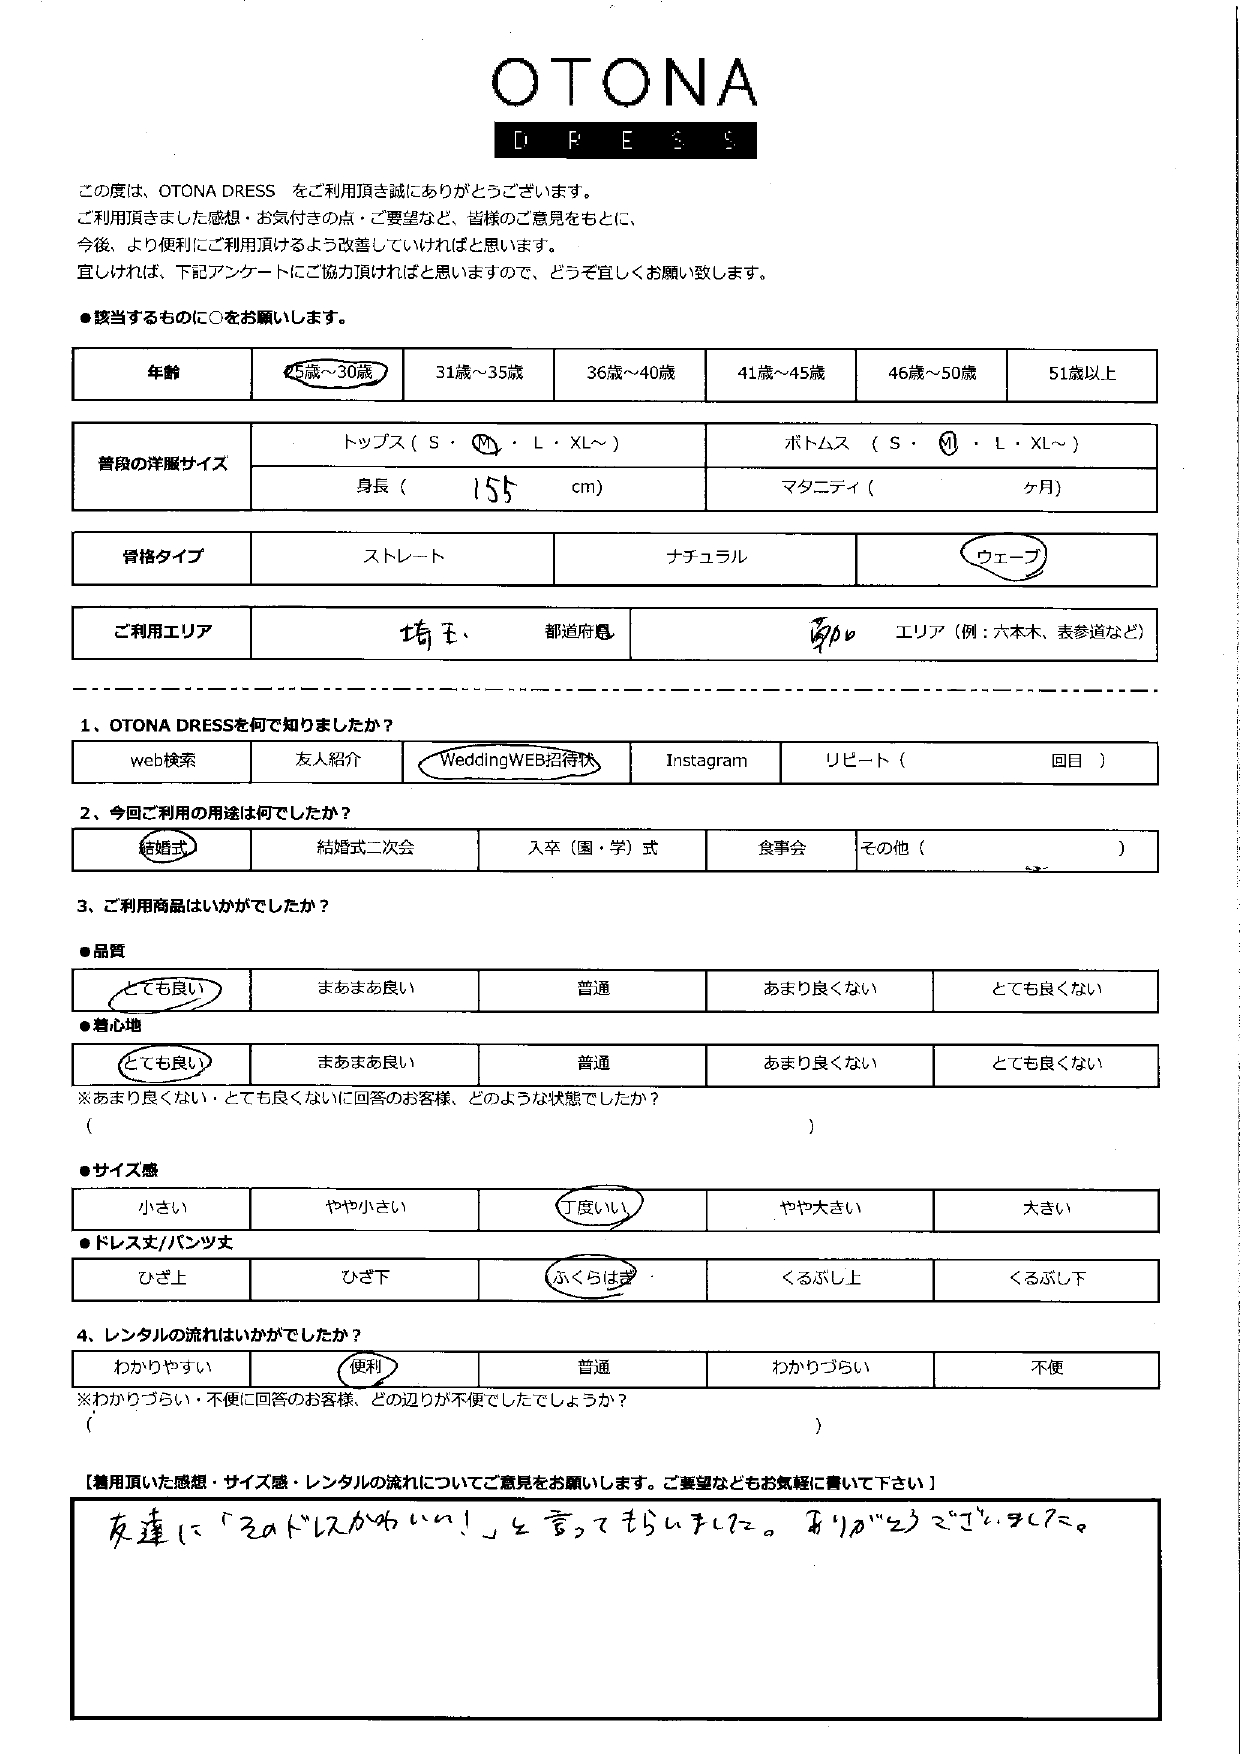 OTONA
DRESS
この度は、OTONA DRESS　をご利用頂き誠にありがとうございます。
ご利用頂きました感想・お気付きの点・ご要望など、皆様のご意見をもとに、
今後、より便利にご利用頂けるよう改善していければと思います。
宜しければ、下記アンケートにご協力頂ければと思いますので、どうぞ宜しくお願い致します。
●該当するものに○をお願いします。
年齢 25歳～30歳 31歳～35歳 36歳～40歳 41歳～45歳 46歳～50歳 51歳以上
普段の洋服サイズ トップス ( S ・ M ・ L ・ XL～ ) ボトムス ( S ・ M ・ L ・ XL～ )
身長 ( 155 cm) マタニティ ( ケ月)
骨格タイプ ストレート ナチュラル ウェーブ
ご利用エリア 埼玉 都道府県 エリア（例：六本木、表参道など）
1、OTONA DRESSを何で知りましたか？
web検索 友人紹介 WeddingWEB招待状 Instagram リピート（ 回目 ）
2、今回ご利用の用途は何でしたか？
結婚式 結婚式二次会 入卒（園・学）式 食事会 その他（ ）
3、ご利用商品はいかがでしたか？
●品質
とても良い まあまあ良い 普通 あまり良くない とても良くない
●着心地
とても良い まあまあ良い 普通 あまり良くない とても良くない
※あまり良くない・とても良くないに回答のお客様、どのような状態でしたか？
( )
●サイズ感
小さい やや小さい 丁度いい やや大きい 大きい
●ドレス丈/パンツ丈
ひざ上 ひざ下 ふくらはぎ くるぶし上 くるぶし下
4、レンタルの流れはいかがでしたか？
わかりやすい 便利 普通 わかりづらい 不便
※わかりづらい・不便に回答のお客様、どの辺りが不便でしたでしょうか？
( )
【着用頂いた感想・サイズ感・レンタルの流れについてご意見をお願いします。ご要望などもお気軽に書いて下さい 】
友達に「そのドレスかわいい！」と言ってもらいました。ありがとうございました。